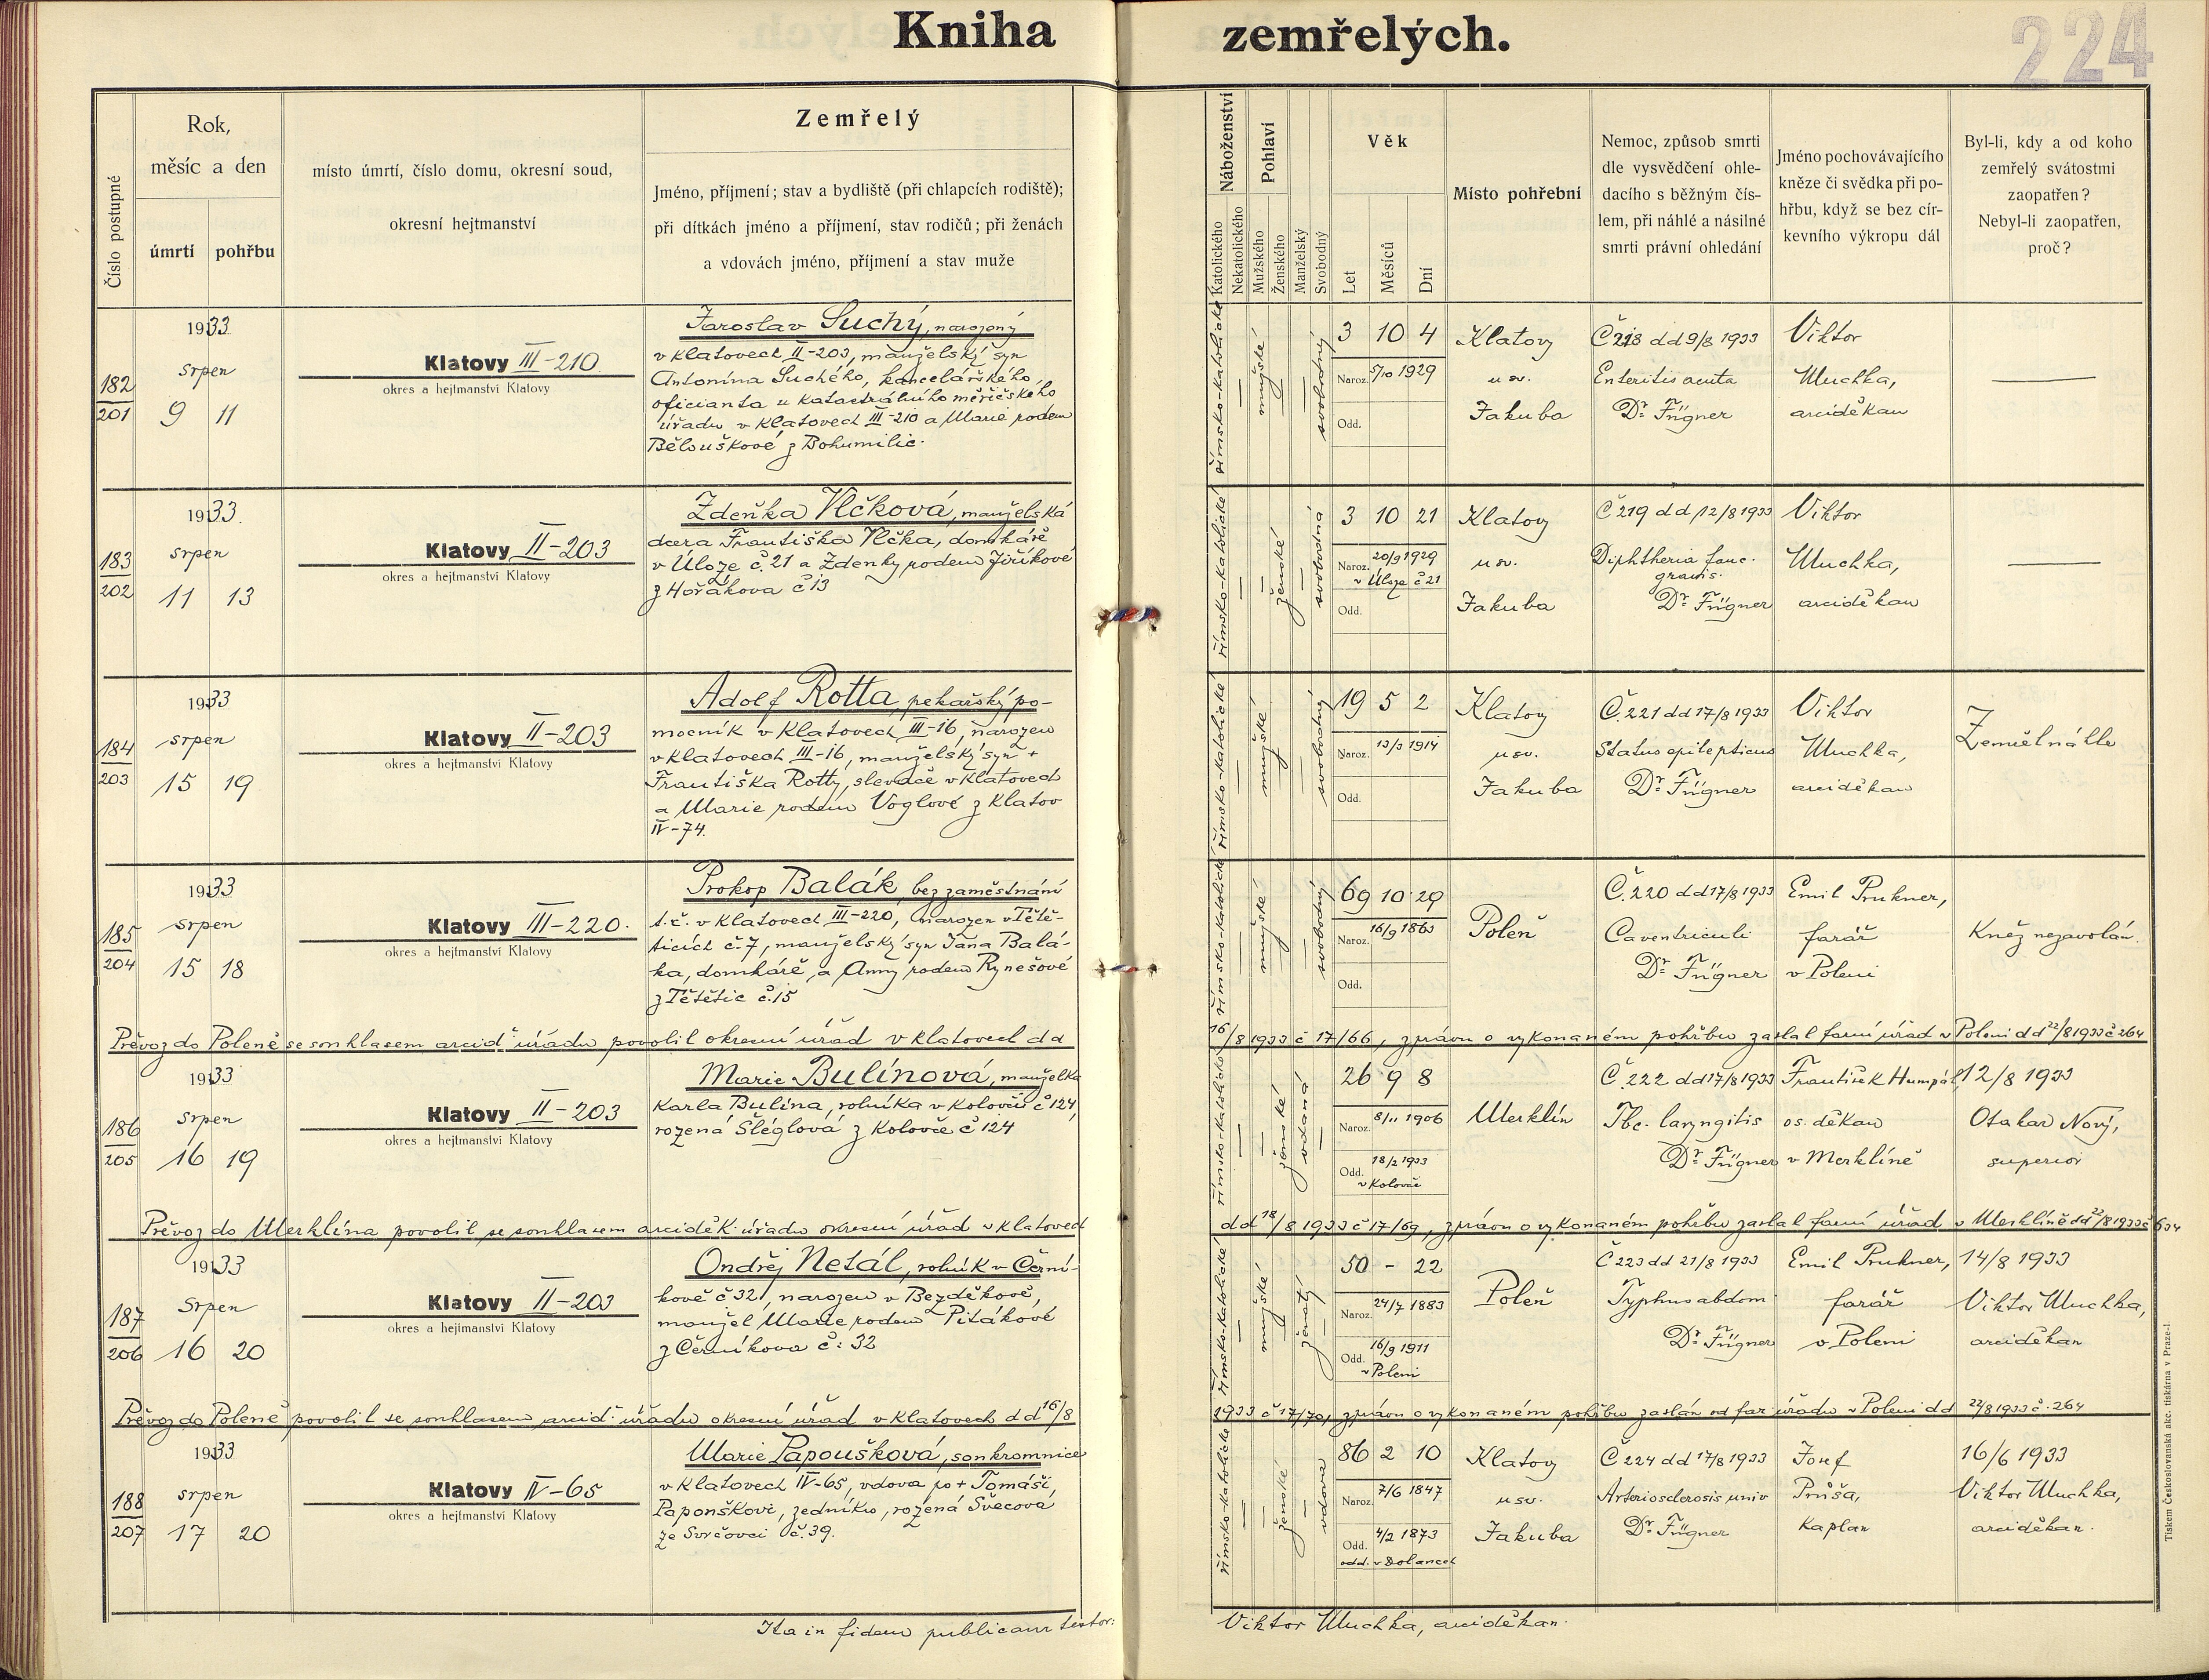 Kniha zemřelých.
224
Číslo postupné
Rok,
měsíc a den
úmrtí
pohřbu
místo úmrtí, číslo domu, okresní soud,
okresní hejtmanství
Zemřelý
Jméno, příjmení; stav a bydliště (při chlapcích rodiště);
při dítkách jméno a příjmení, stav rodičů; při ženách
a vdovách jméno, příjmení a stav muže
Náboženství
Katolického
Nekatolického
Pohlaví
Mužského
Ženského
Manželský
Svobodný
Věk
Let
Měsíců
Dní
Místo pohřební
Nemoc, způsob smrti
dle vysvědčení ohle-
dacího s běžným čís-
lem, při náhlé a násilné
smrti právní ohledání
Jméno pochovávajícího
kněze či svědka při po-
hřbu, když se bez cír-
kevního výkropu dál
Byl-li, kdy a od koho
zemřelý svátostmi
zaopatřen?
Nebyl-li zaopatřen,
proč?
182
201
1933
srpen
9 11
Klatovy III-210
okres a hejtmanství Klatovy
Jaroslav Suchý, narozený
v Klatovech II-203, manželský syn
Antonína Suchého, kancelářského
oficianta u katastrálního měřičského
úřadu v Klatovech III-210 a Marie rodem
Běloušková z Bohumilic.
římsko-katolické
mužské
svobodný
3 10 4
Naroz. 5/10 1929
Odd.
Klatovy
u sv.
Jakuba
Č 218 dd 9/8 1933
Enteritis acuta
Dr. Fügner
Viktor
Muchka,
arciděkan
183
202
1933
srpen
11 13
Klatovy II-203
okres a hejtmanství Klatovy
Zdeňka Vlčková, manželská
dcera Františka Vlčka, domkáře
v Úloze č. 21 a Zdenky rodem Jiříkové
z Hořákova č 13
římsko-katolické
ženské
svobodná
3 10 21
Naroz. 20/9 1929
v Úloze č 21
Odd.
Klatovy
u sv.
Jakuba
Č 219 dd 12/8 1933
Diphtheria fauc.
gravis.
Dr. Fügner
Viktor
Muchka,
arciděkan
184
203
1933
srpen
15 19
Klatovy II-203
okres a hejtmanství Klatovy
Adolf Rotta, pekařský po-
mocník v Klatovech III-16, narozen
v Klatovech III-16, manželský syn +
Františka Rotty, slevače v Klatovech
a Marie rodem Voglové z Klatov
IV-74.
římsko-katolické
mužské
svobodný
19 5 2
Naroz. 13/3 1914
Odd.
Klatovy
u sv.
Jakuba
Č. 221 dd 17/8 1933
Status epilepticus
Dr. Fügner
Viktor
Muchka,
arciděkan
Zemřel náhle
185
204
1933
srpen
15 18
Klatovy III-220.
okres a hejtmanství Klatovy
Prokop Balák, bez zaměstnání
t. č. v Klatovech III-220, narozen v Tětě-
ticích č. 7, manželský syn Jana Balá-
ka, domkáře, a Anny rodem Rynešové
z Tětětic č. 15
římsko-katolické
mužské
svobodný
69 10 29
Naroz. 16/9 1863
Odd.
Poleň
Č. 220 dd 17/8 1933
Ca ventriculi
Dr. Fügner
Emil Prukner,
farář
v Poleni
Kněz nezavolán.
Převoz do Poleně se souhlasem arcid. úřadu povolil okresní úřad v Klatovech dd 16/8 1933 č 17/66, zprávu o vykonaném pohřbu zaslal farní úřad v Poleni dd 22/8 1933 č 264
186
205
1933
srpen
16 19
Klatovy II-203
okres a hejtmanství Klatovy
Marie Bulínová, manželka
Karla Bulína, rolníka v Kolovči č 124,
rozená Šléglová z Kolovče č 124
římsko-katolické
ženské
vdaná
26 9 8
Naroz. 8/11 1906
Odd. 18/2 1933
v Kolovči
Merklín
Č. 222 dd 17/8 1933
Tbc. laryngitis
Dr. Fügner
František Humpál
os. děkan
v Merklíně
12/8 1933
Otakar Nový,
superior
Převoz do Merklína povolil se souhlasem arciděk. úřadu okresní úřad v Klatovech dd 18/8 1933 č 17/69, zprávu o vykonaném pohřbu zaslal farní úřad v Merklíně dd 22/8 1933 č 634
187
206
1933
Srpen
16 20
Klatovy II-203
okres a hejtmanství Klatovy
Ondřej Netál, rolník v Černí-
kově č 32, narozen v Bezděkově,
manžel Marie rodem Pitákové
z Černíkova č: 32
římsko-katolické
mužské
ženatý
50 - 22
Naroz. 24/7 1883
Odd. 16/9 1911
v Poleni
Poleň
Č 223 dd 21/8 1933
Typhus abdom
Dr. Fügner
Emil Prukner,
farář
v Poleni
14/8 1933
Viktor Muchka,
arciděkan
Převoz do Poleně povolil se souhlasem arcid. úřadu okresní úřad v Klatovech dd 16/8 1933 č 17/70, zprávu o vykonaném pohřbu zaslán od far. úřadu v Poleni dd 22/8 1933 č. 264
188
207
1933
srpen
17 20
Klatovy IV-65
okres a hejtmanství Klatovy
Marie Papoušková, soukromnice
v Klatovech IV-65, vdova po + Tomáši
Papouškovi, zedníku, rozená Švecová
ze Svrčovci č. 39.
římsko-katolické
ženské
vdova
86 2 10
Naroz. 7/6 1847
Odd. 4/2 1873
odd. v Dolanech
Klatovy
u sv.
Jakuba
Č 224 dd 17/8 1933
Arteriosclerosis univ
Dr. Fügner
Josef
Průša,
Kaplan
16/6 1933
Viktor Muchka,
arciděkan.
Ita in fidem publicam testor: Viktor Muchka, arciděkan.
Tiskem Československá akc. tiskárna v Praze-I.